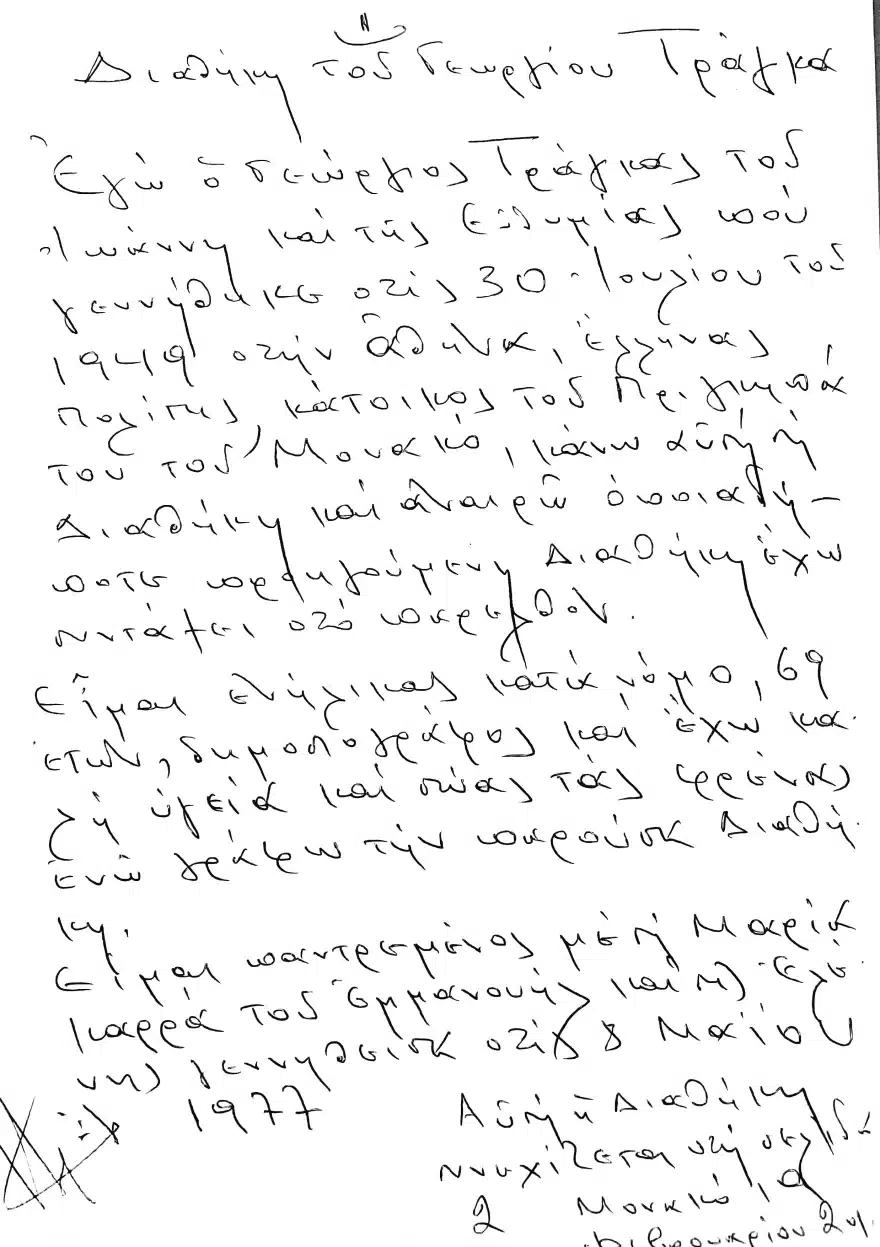 Διαθήκη τοῦ Γεωργίου Τράγκα
Ἐγώ ὁ Γεώργιος Τράγκας τοῦ
Ἰωάννη καί τῆς Εὐθυμίας πού
γεννήθηκε στίς 30 Ἰουλίου τοῦ
1949 στήν Ἀθήνα, Ἕλληνας
πολίτης, κάτοικος τοῦ Πριγκηπά
του τοῦ Μονακό, κάνω αὐτή τή
Διαθήκη καί ἀναιρῶ ὁποιαδή-
ποτε προηγούμενη Διαθήκη ἔχω
συντάξει στό παρελθόν.
Εἶμαι ἐνήλικας κατά νόμο, 69
ἐτῶν, δημοσιογράφος καί ἔχω κα
λή ὑγεία καί σώας τάς φρένας
ἐνῶ γράφω τήν παροῦσα Διαθή
κη.
Εἶμαι παντρεμένος μέ τή Μαρία
Καρρά τοῦ Ἐμμανουήλ καί τῆς Ἑλέ
νης γεννηθεῖσα στίς 8 Μαΐου
1977
Αὐτή ἡ Διαθήκη
συνεχίζεται στή σελίδα
2 Μονακό, 19
Φεβρουαρίου